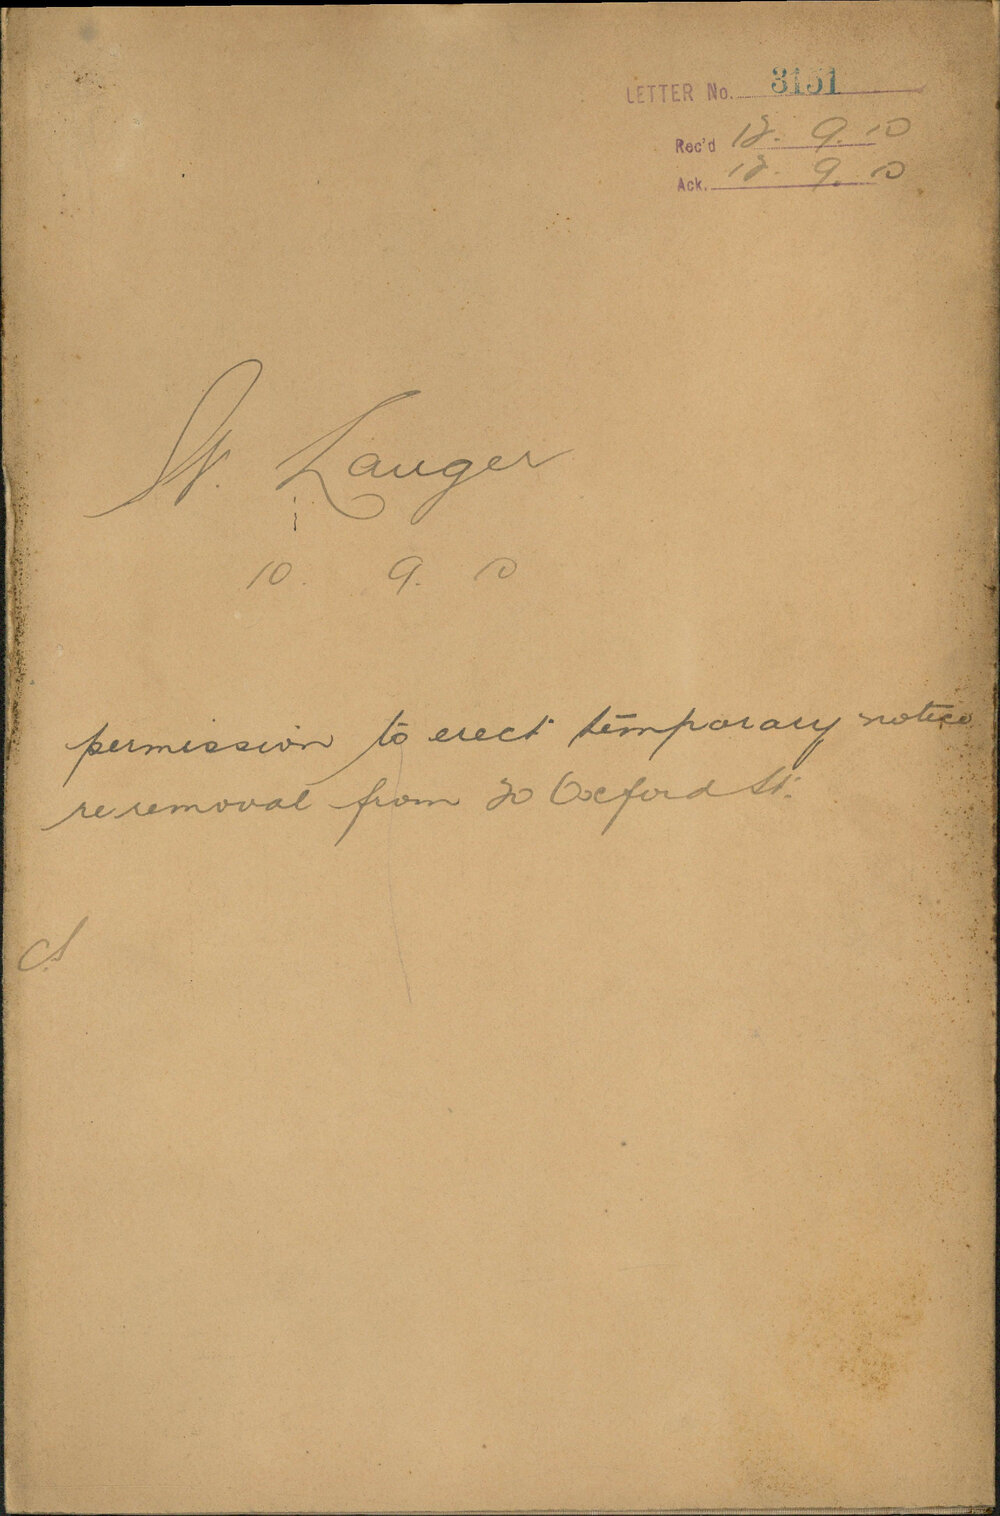 LETTER No. 3151
Rec'd 12. 9. 10
Ack. 12. 9. 10
W. Langer
10. 9. 10
permission to erect temporary notice
re removal from 20 Oxford St.